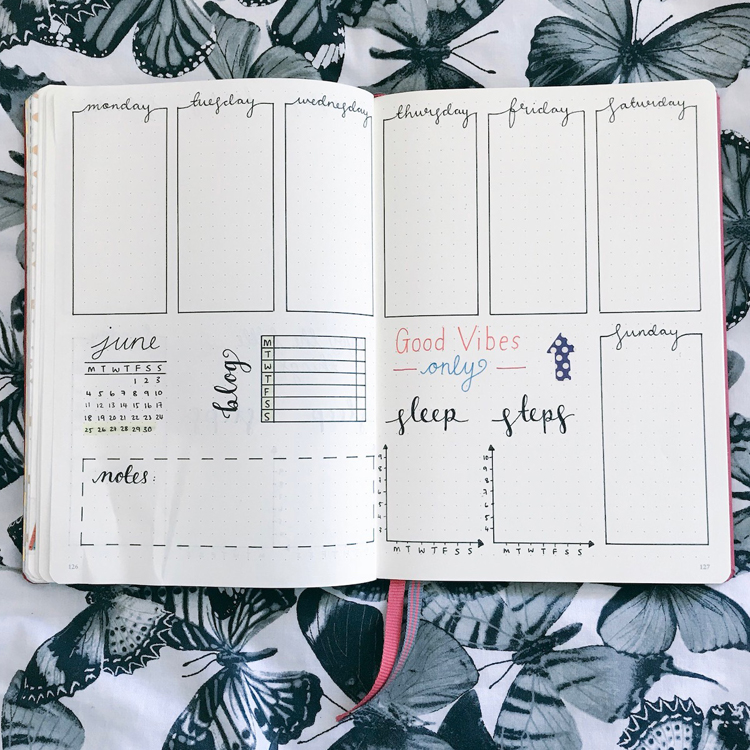 monday
tuesday
wednesday
thursday
friday
saturday
june
M T W T F S S
1 2 3
4 5 6 7 8 9 10
11 12 13 14 15 16 17
18 19 20 21 22 23 24
25 26 27 28 29 30
blog
M
T
W
T
F
S
S
notes:
126
Good Vibes
only
sleep
steps
M T W T F S S
10
9
8
7
6
5
4
M T W T F S S
sunday
127